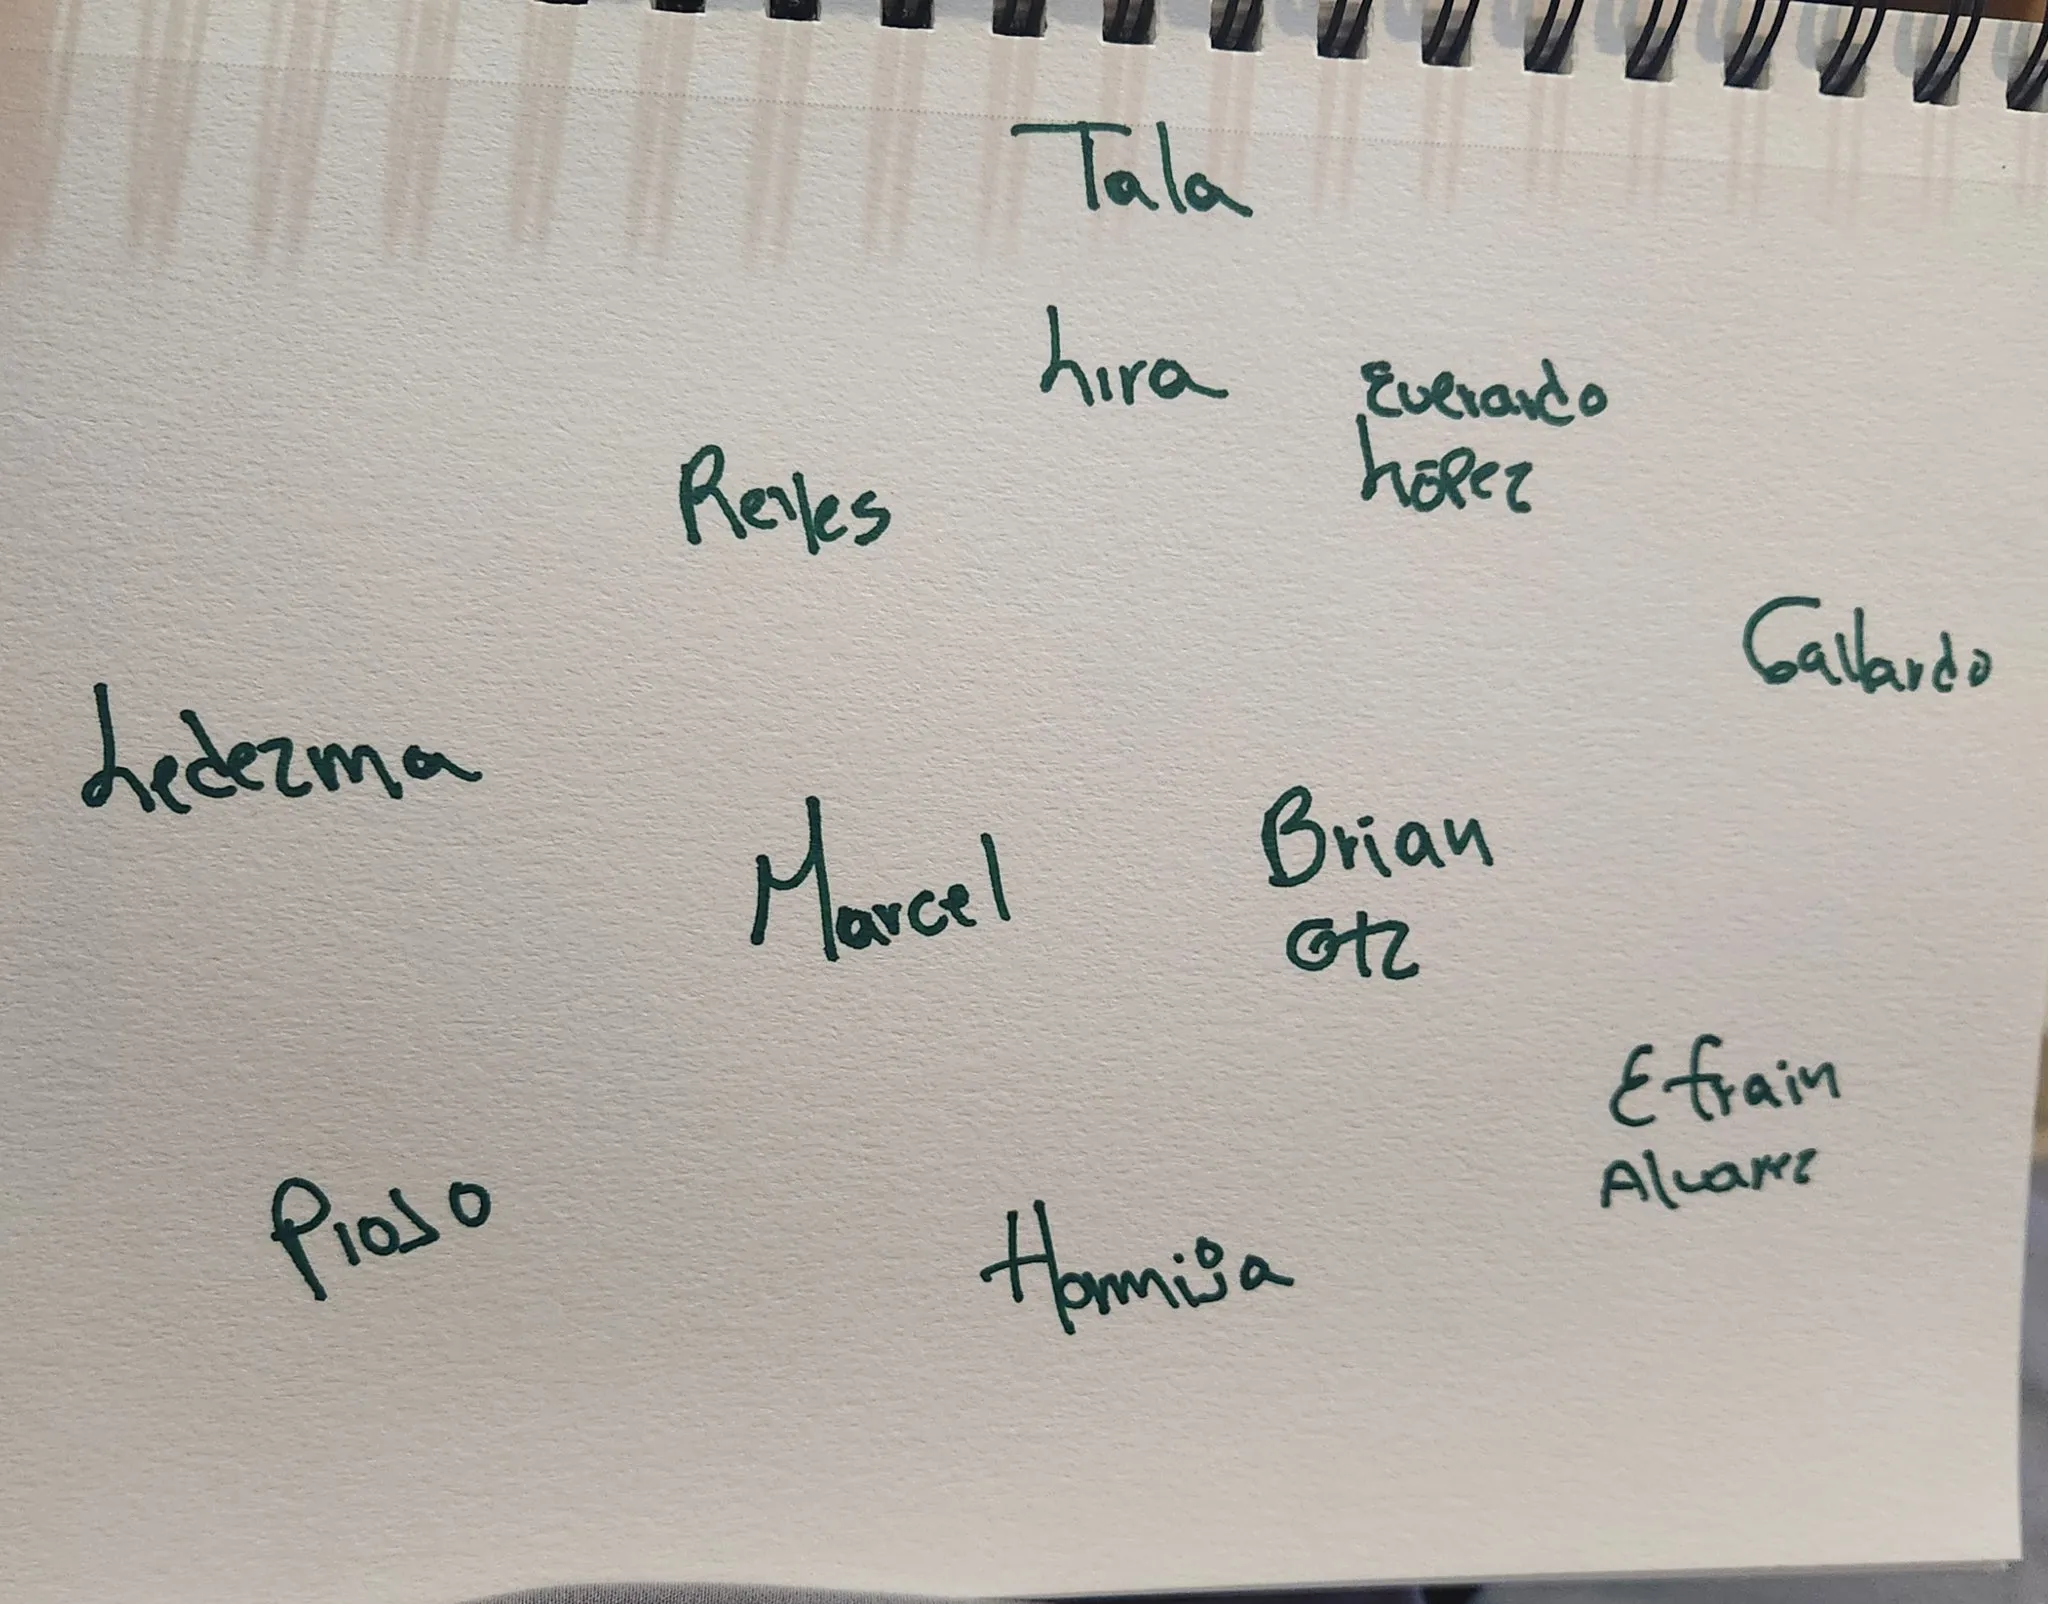 Tala
Lira
Everardo
López
Reyes
Gallardo
Ledezma
Marcel
Brian
Gtz
Efrain
Alvarez
Piojo
Hormiga